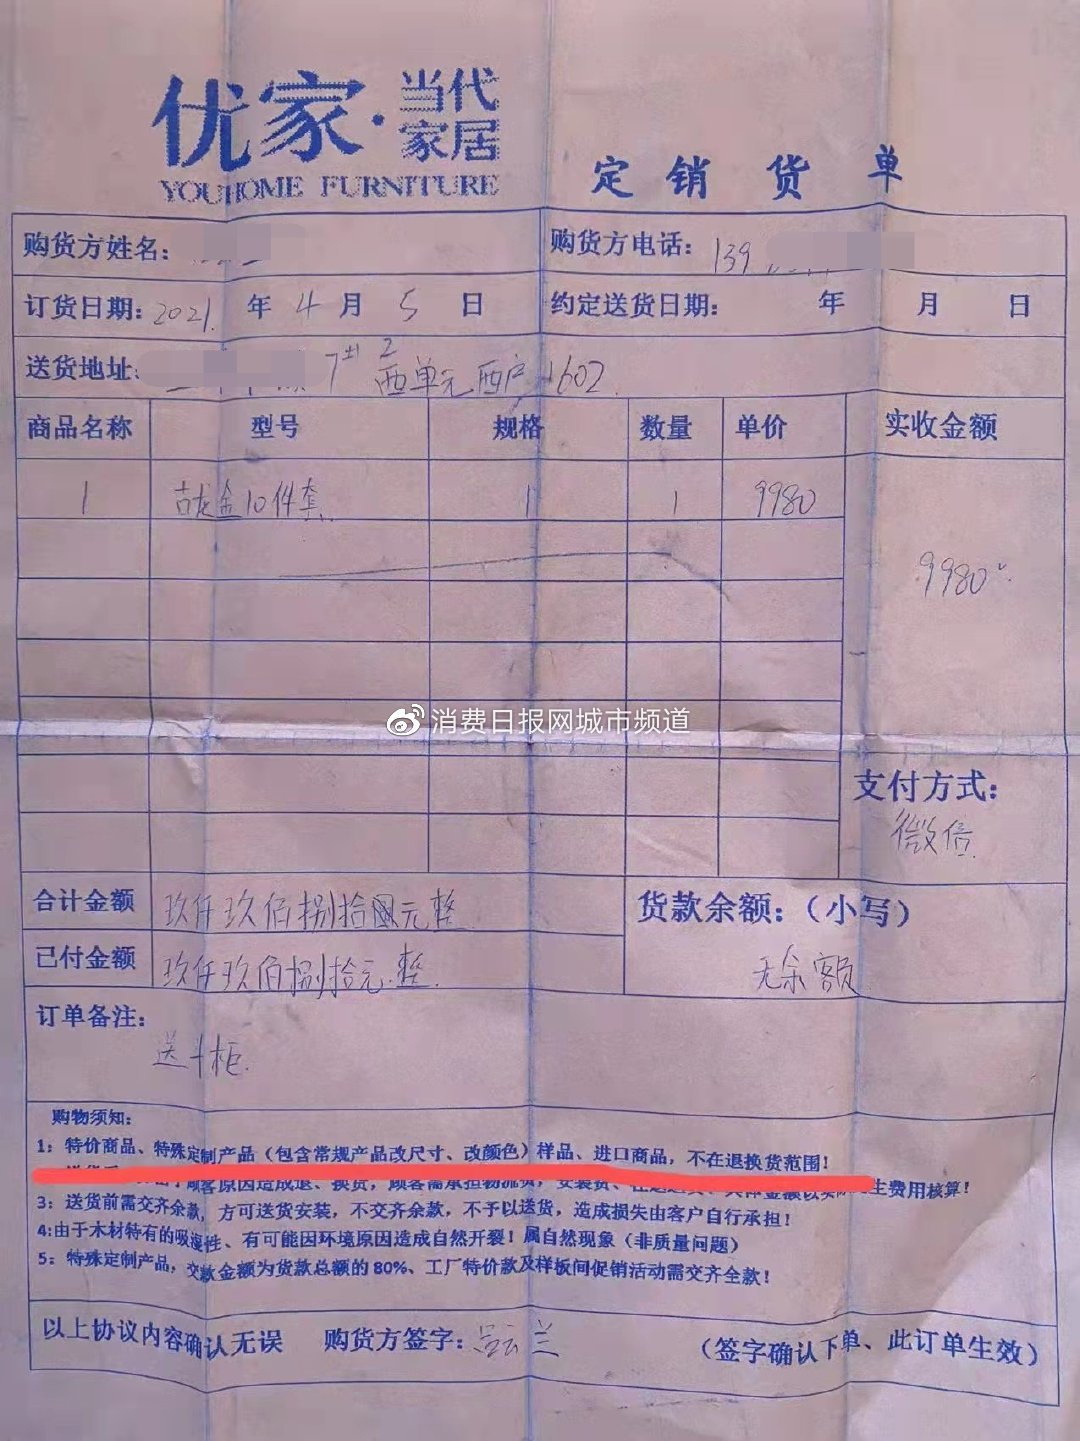 优家·当代家居
YOUHOME FURNITURE
定销货单
购货方姓名： 购货方电话：139
订货日期：2021.年4月5日 约定送货日期： 年 月 日
送货地址： 西单元西户1602
商品名称 型号 规格 数量 单价 实收金额
1 古龙金10件套 1 1 9980
9980
消费日报网城市频道
支付方式：
微信
合计金额 玖仟玖佰捌拾元整 货款余额：（小写）
已付金额 玖仟玖佰捌拾元整 无余额
订单备注：
送斗柜
购物须知：
1：特价商品、特殊定制产品（包含常规产品改尺寸、改颜色）样品、进口商品，不在退换货范围！
顾客原因造成退、换货，顾客需承担物流费，安装费、生费用核算！
3：送货前需交齐余款，方可送货安装，不交齐余款，不予以送货，造成损失由客户自行承担！
4:由于木材特有的吸湿性、有可能因环境原因造成自然开裂！属自然现象（非质量问题）
5：特殊定制产品，交款金额为货款总额的80%、工厂特价款及样板间促销活动需交齐全款！
以上协议内容确认无误 购货方签字： 兰 （签字确认下单、此订单生效）